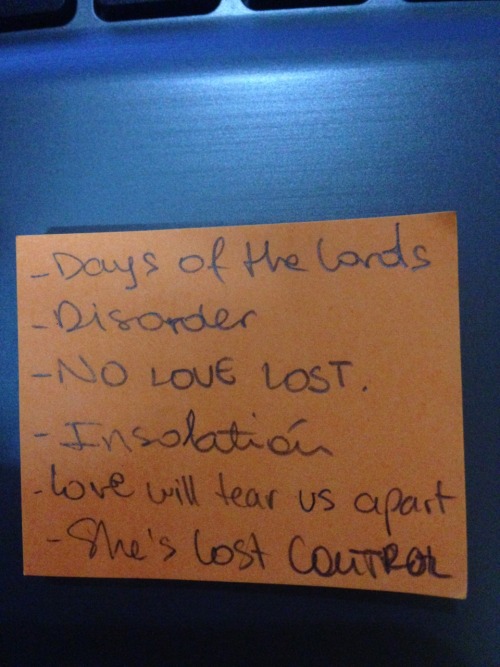 - Days of the Lords
- Disorder
- NO LOVE LOST.
- Insolatión
- Love will tear us apart
- She's Lost CONTROL